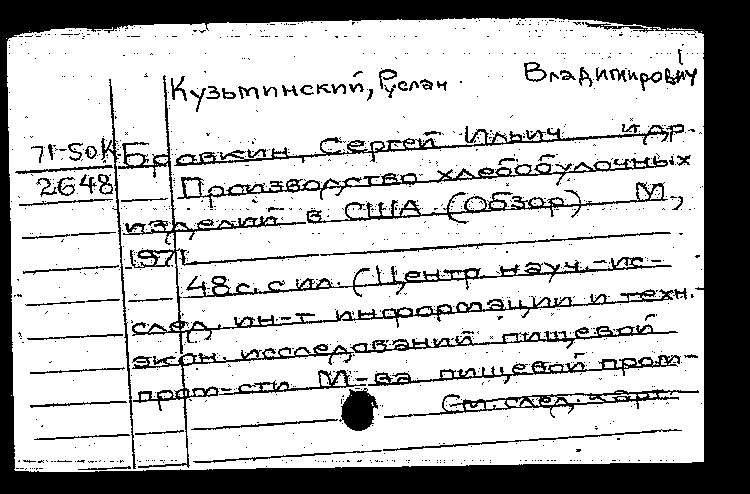 Кузьминский, Руслан Владимирович
71-50К Бровкин, Сергей Ильич и др.
2648 Производство хлебобулочных
изделий в США. (Обзор). М.,
1971.
48 с. с ил. (Центр. науч.-ис-
след. ин-т информации и техн.-
экон. исследований пищевой
пром-сти М-ва пищевой пром-
См. след. карт.